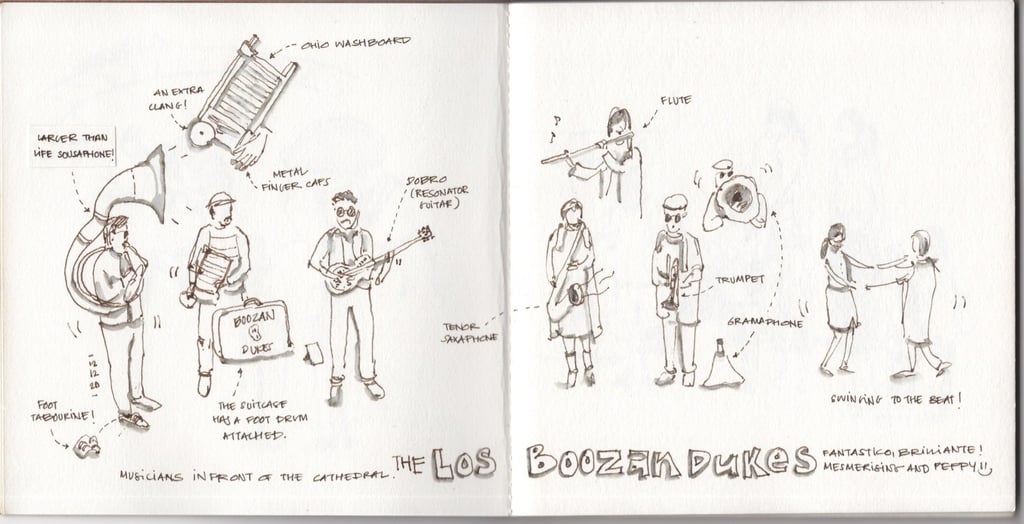 OHIO WASHBOARD
AN EXTRA
CLANG!
LARGER THAN
LIFE SOUSAPHONE!
METAL
FINGER CAPS
DOBRO
(RESONATOR
GUITAR)
BOOZAN
DUKES
12
12
20
FOOT
TABOURINE!
THE SUITCASE
HAS A FOOT DRUM
ATTACHED.
MUSICIANS IN FRONT OF THE CATHEDRAL.
FLUTE
TENOR
SAXAPHONE
TRUMPET
GRAMAPHONE
SWINGING TO THE BEAT!
THE LOS BOOZAN DUKES
FANTASTICO, BRILLIANTE!
MESMERISING AND PEPPY!!